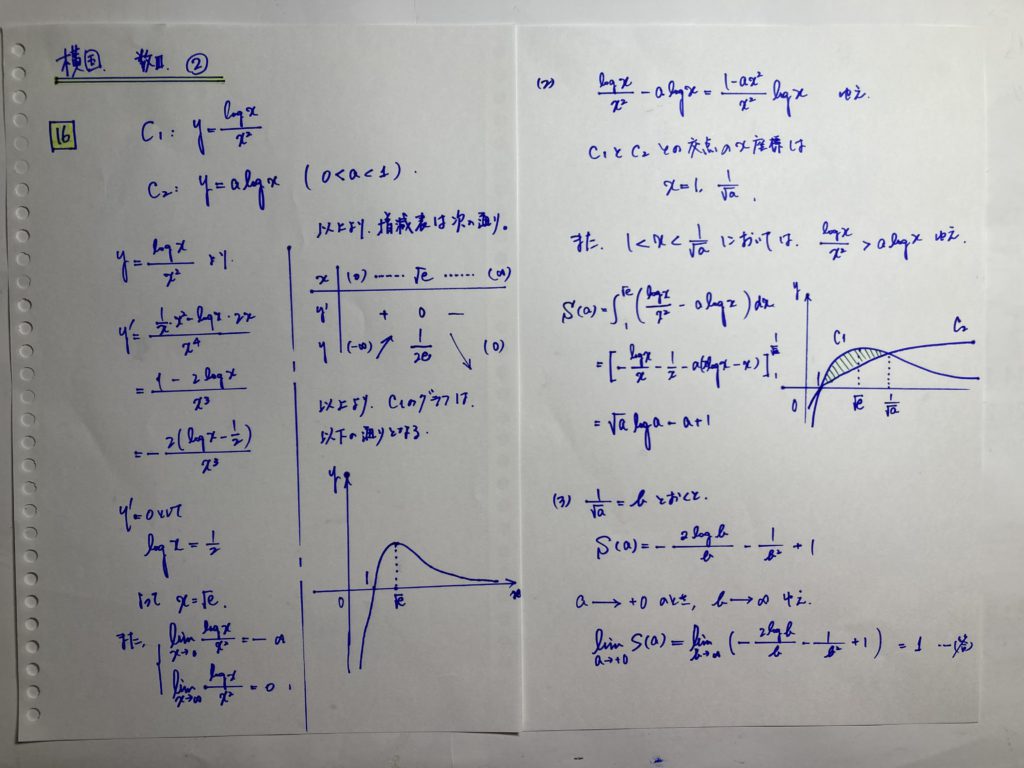 横国 数Ⅲ ②
16
C₁: y = log x / x²
C₂: y = a log x (0<a<1).
y = log x / x² より
y' = (1/x・x² - log x・2x) / x⁴
= (1 - 2 log x) / x³
= - 2(log x - 1/2) / x³
y' = 0 として
log x = 1/2
よって x = √e.
また,
lim_{x→0} log x / x² = -∞
lim_{x→∞} log x / x² = 0.
以上より, 増減表は次の通り。
x (0) …… √e …… (∞)
y' + 0 −
y (-∞) ↗ 1/2e ↘ (0)
以上より, C₁のグラフは,
以下の通りとなる.
y
0 1 √e x
(2) log x / x² - a log x = (1-ax²)/x² log x ゆえ.
C₁とC₂との交点のx座標は
x = 1, 1/√a.
また, 1<x<1/√a においては, log x / x² > a log x ゆえ.
S(a) = ∫₁^√e (log x / x² - a log x) dx
= [- log x / x - 1/x - a(x log x - x)]₁^{1/√a}
= √a log a - a + 1
y
C₁ C₂
0 1 √e 1/√a
(3) 1/√a = b とおくと.
S(a) = - 2 log b / b - 1/b² + 1
a → +0 のとき, b → ∞ ゆえ.
lim_{a→+0} S(a) = lim_{b→∞} (- 2 log b / b - 1/b² + 1) = 1 …(答)